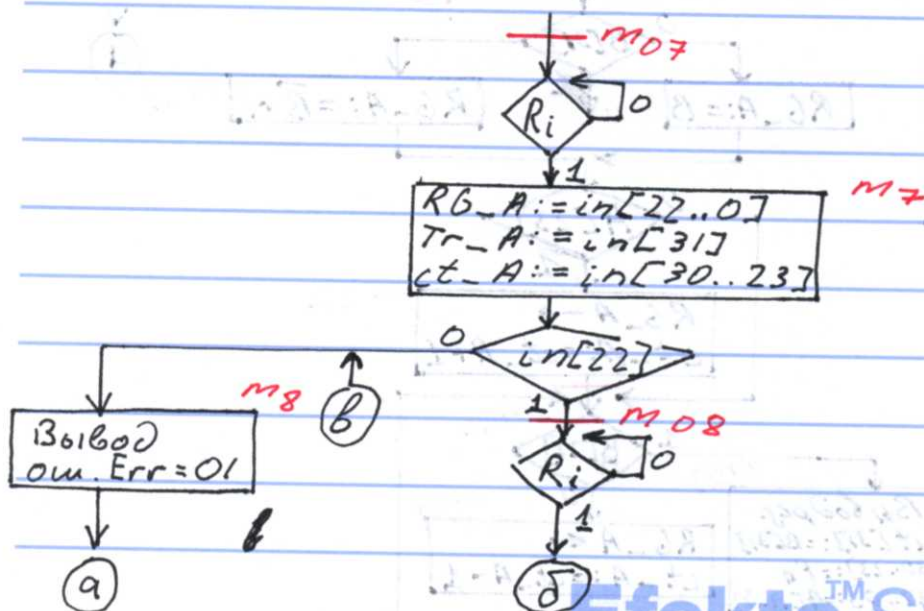 m07
Ri
0
1
m7
RG_A:=in[22..0]
Tr_A:=in[31]
ct_A:=in[30..23]
0
in[22]
m8
в
1
m08
Вывод
ош. Err=01
Ri
0
1
а
б
Efekta™